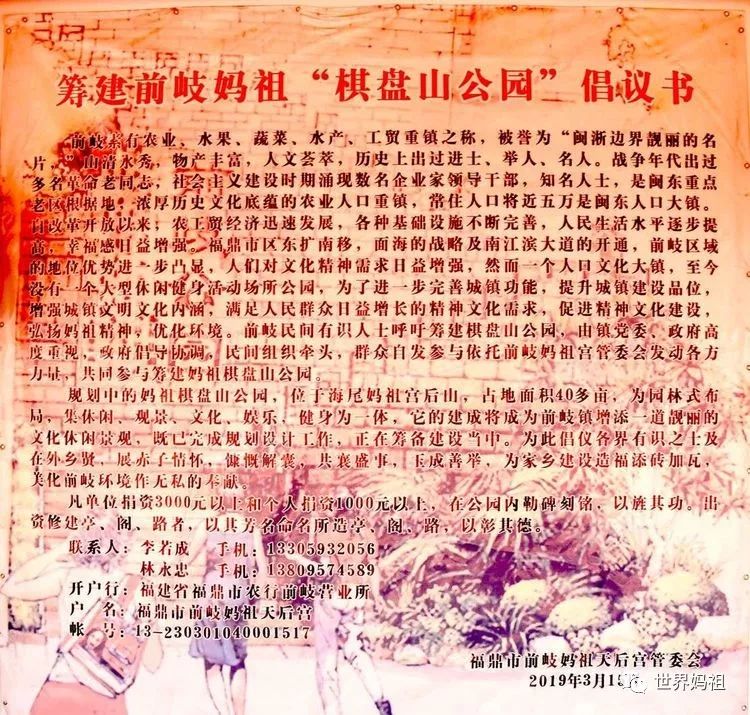 筹建前岐妈祖“棋盘山公园”倡议书
前岐素有农业、水果、蔬菜、水产、工贸重镇之称，被誉为“闽浙边界靓丽的名
片。”山清水秀，物产丰富，人文荟萃，历史上出过进士、举人、名人。战争年代出过
多名革命老同志，社会主义建设时期涌现数名企业家领导干部，知名人士，是闽东重点
老区根据地；浓厚历史文化底蕴的农业人口重镇，常住人口将近五万是闽东人口大镇。
自改革开放以来；农工贸经济迅速发展，各种基础设施不断完善，人民生活水平逐步提
高，幸福感日益增强。福鼎市区东扩南移，面海的战略及南江滨大道的开通，前岐区域
的地位优势进一步凸显，人们对文化精神需求日益增强，然而一个人口文化大镇，至今
没有一个大型休闲健身活动场所公园，为了进一步完善城镇功能，提升城镇建设品位，
增强城镇文明文化内涵，满足人民群众日益增长的精神文化需求，促进精神文化建设，
弘扬妈祖精神，优化环境。前岐民间有识人士呼吁筹建棋盘山公园，由镇党委、政府高
度重视，政府倡导协调，民间组织牵头，群众自发参与依托前岐妈祖宫管委会发动各方
力量，共同参与筹建妈祖棋盘山公园。
规划中的妈祖棋盘山公园，位于海尾妈祖宫后山，占地面积40多亩，为园林式布
局，集休闲、观景、文化、娱乐，健身为一体，它的建成将成为前岐镇增添一道靓丽的
文化休闲景观，既已完成规划设计工作，正在筹备建设当中。为此倡仪各界有识之士及
在外乡贤，展赤子情怀，慷慨解囊，共襄盛事，玉成善举，为家乡建设造福添砖加瓦，
美化前岐环境作无私的奉献。
凡单位捐资3000元以上和个人捐资1000元以上，在公园内勒碑刻铭，以旌其功。出
资修建亭、阁、路者，以其芳名命名所造亭、阁、路，以彰其德。
联系人：李若成 手机：13305932056
林永忠 手机：13809574589
开户行：福建省福鼎市农行前岐营业所
户 名：福鼎市前岐妈祖天后宫
帐 号：13-230301040001517
福鼎市前岐妈祖天后宫管委会
2019年3月1
世界妈祖